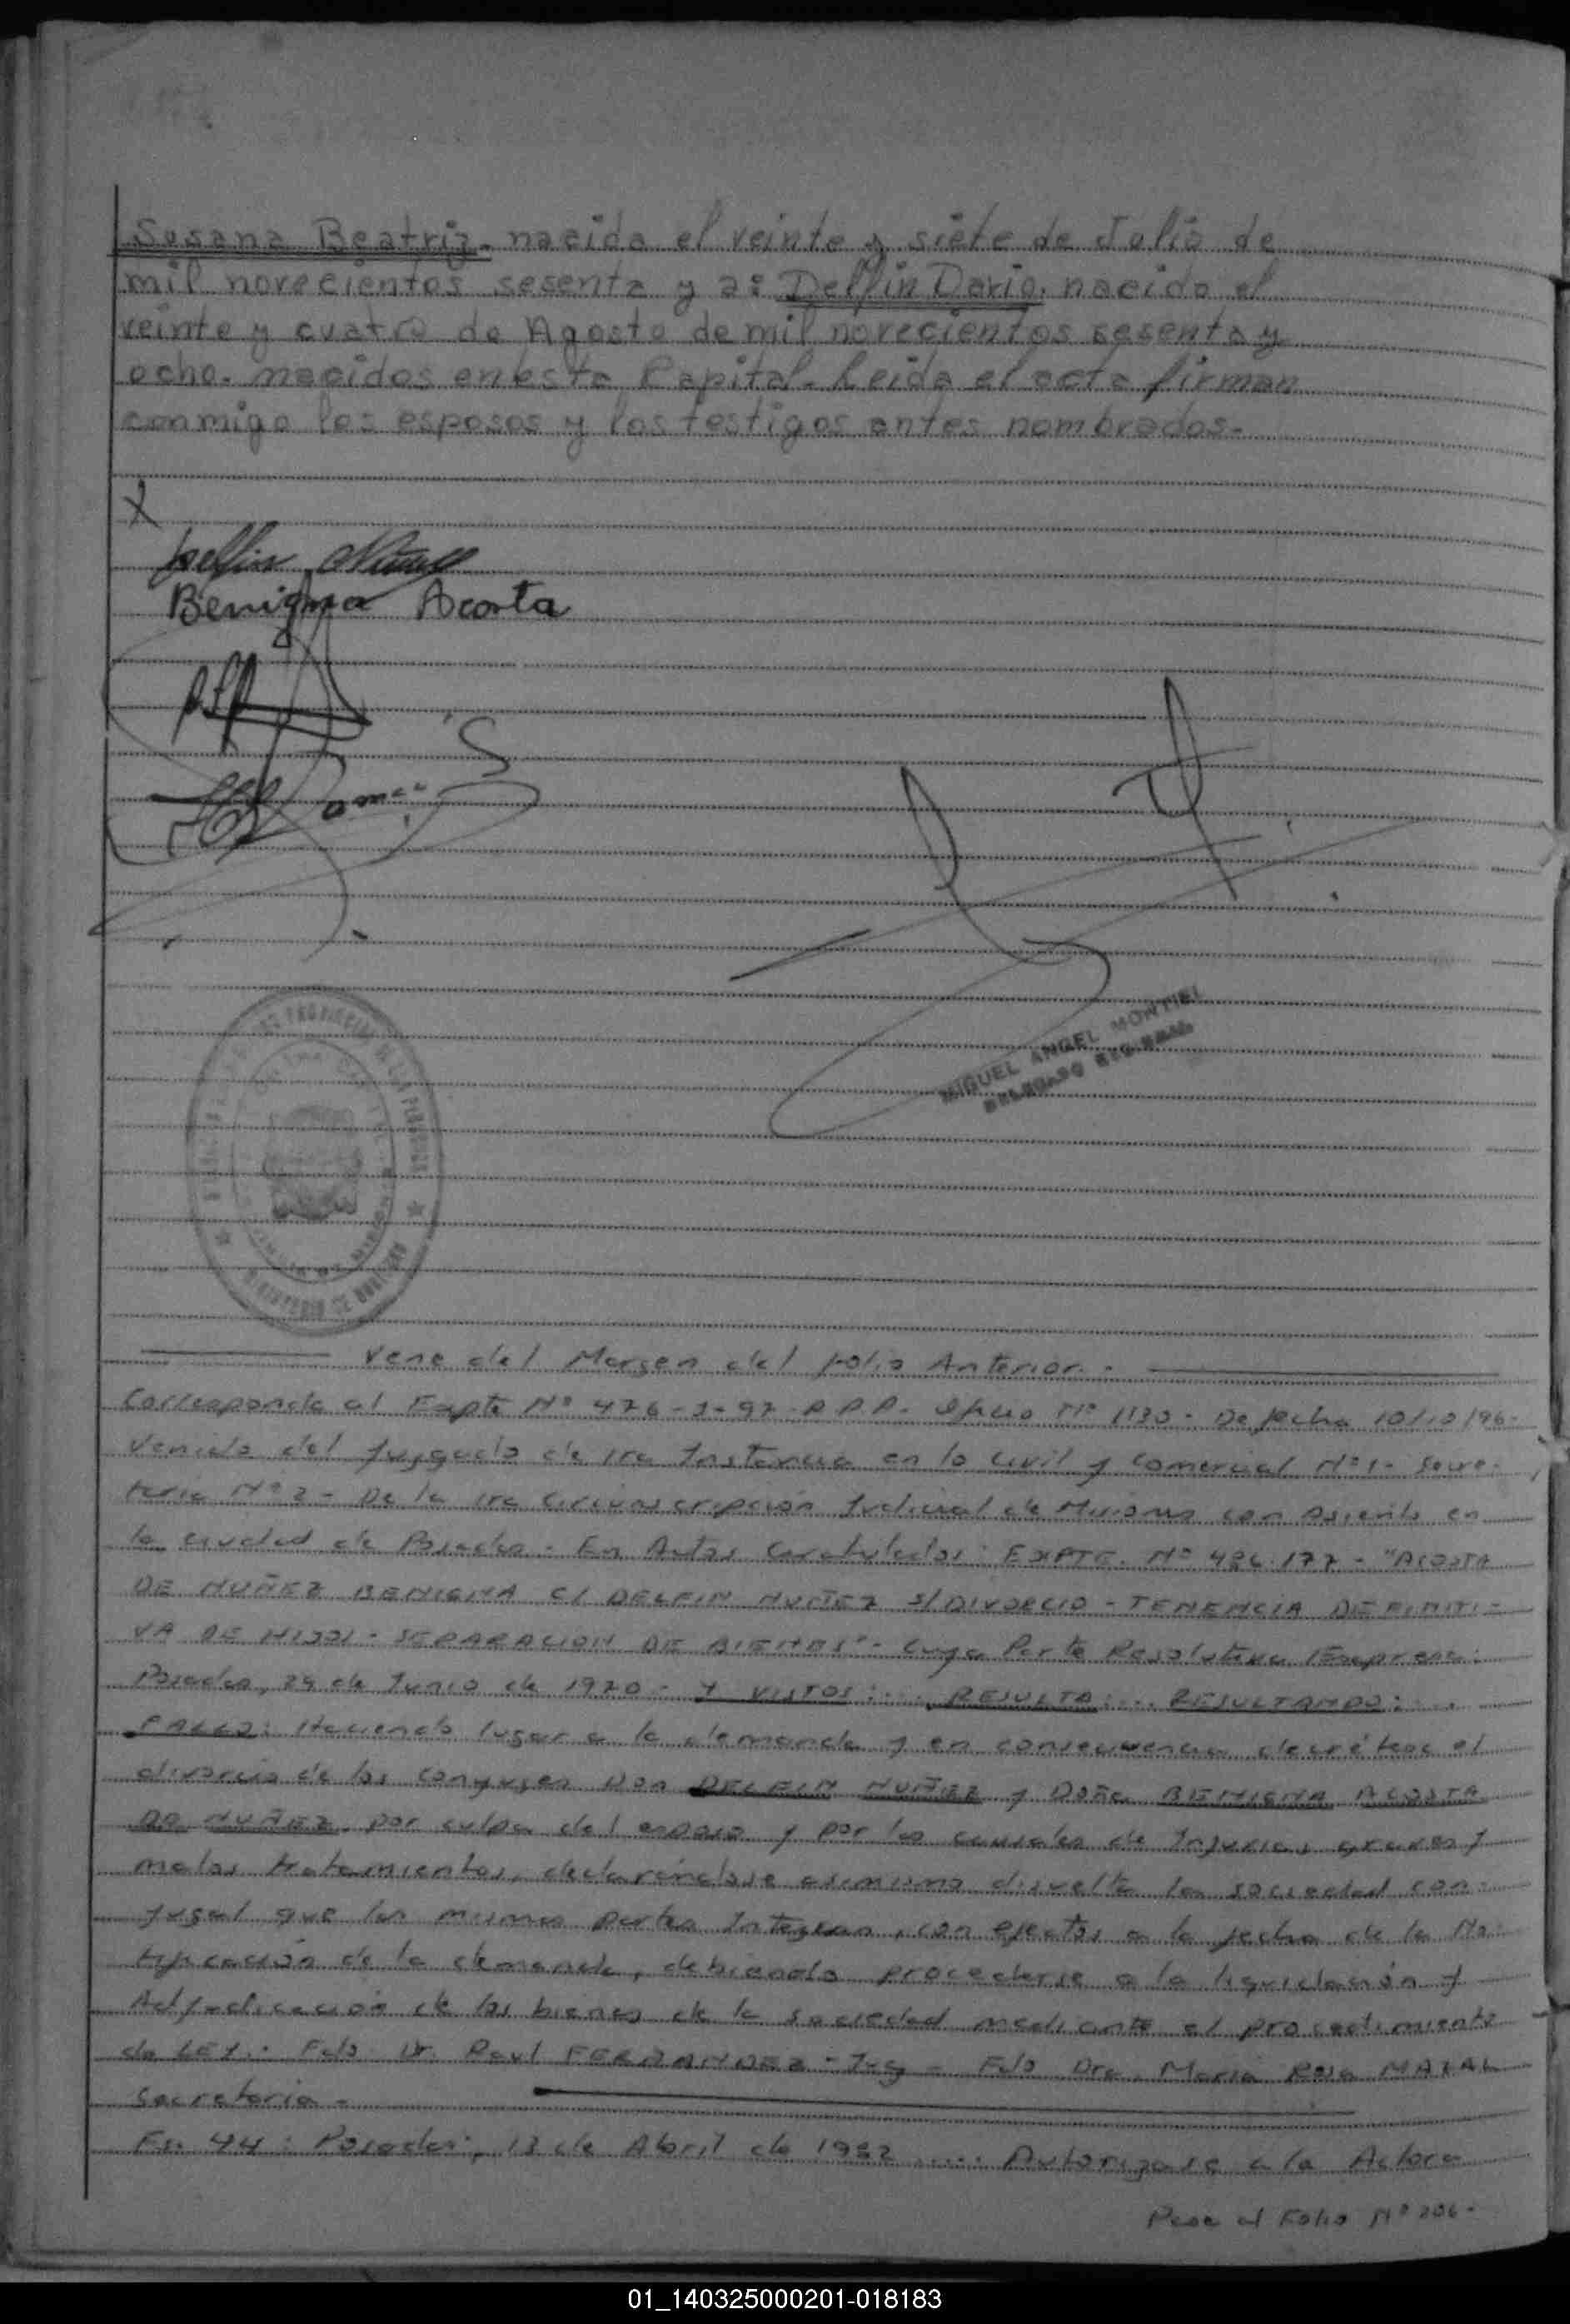 Susana Beatriz. nacida el veinte y siete de Julio de
mil novecientos sesenta y a: Delfin Dario. nacido el
veinte y cuatro de Agosto de mil novecientos sesenta y
ocho. nacidos en esta Capital. Leida el acta firman
conmigo los esposos y los testigos antes nombrados.-
X
Delfin Nuñez
Benigna Acosta
MIGUEL ANGEL MONTIEL
DELEGADO
Viene del Margen del folio Anterior.-
Corresponde al Expte Nº 476- -97- R.P.P.- Oficio Nº 1130- De fecha 10/10/96-
Venido del Juzgado de 1ra Instancia en lo Civil y Comercial Nº1- Secre-
taria Nº2- De la 1ra Circunscripción Judicial de Misiones con Asiento en
la ciudad de Posadas- En Autos Caratulados: EXPTE. Nº 177- "ACOSTA
DE NUÑEZ BENIGNA C/ DELFIN NUÑEZ S/DIVORCIO - TENENCIA DEFINITI-
VA DE HIJOS - SEPARACION DE BIENES"- Cuya Parte Resolutiva Expresa:
Posadas, 29 de Junio de 19 0- Y VISTOS:.... RESULTA:.... RESULTANDO:....
FALLO: Haciendo lugar a la demanda y en consecuencia decrétese el
divorcio de los conyuges Don DELFIN NUÑEZ y Doña BENIGNA ACOSTA
DE NUÑEZ por culpa del esposo y por las causales de Injurias graves y
malos tratamientos, declarándose asimismo disuelta la sociedad con-
yugal que las mismas partes Integran, con efectos a la fecha de la No-
tificación de la demanda, debiendo procederse a la liquidación y
Adjudicación de los bienes de la sociedad mediante el procedimiento
de LEY.- Fdo Dr. Raul FERNANDEZ - Juez - Fdo Dra. Maria Rosa MAZAL
Secretaria-
Fs. 44: Posadas, 13 de Abril de 1982..... Autorizase a la Actora
Pasa al Folio Nº 206-
01_140325000201-018183